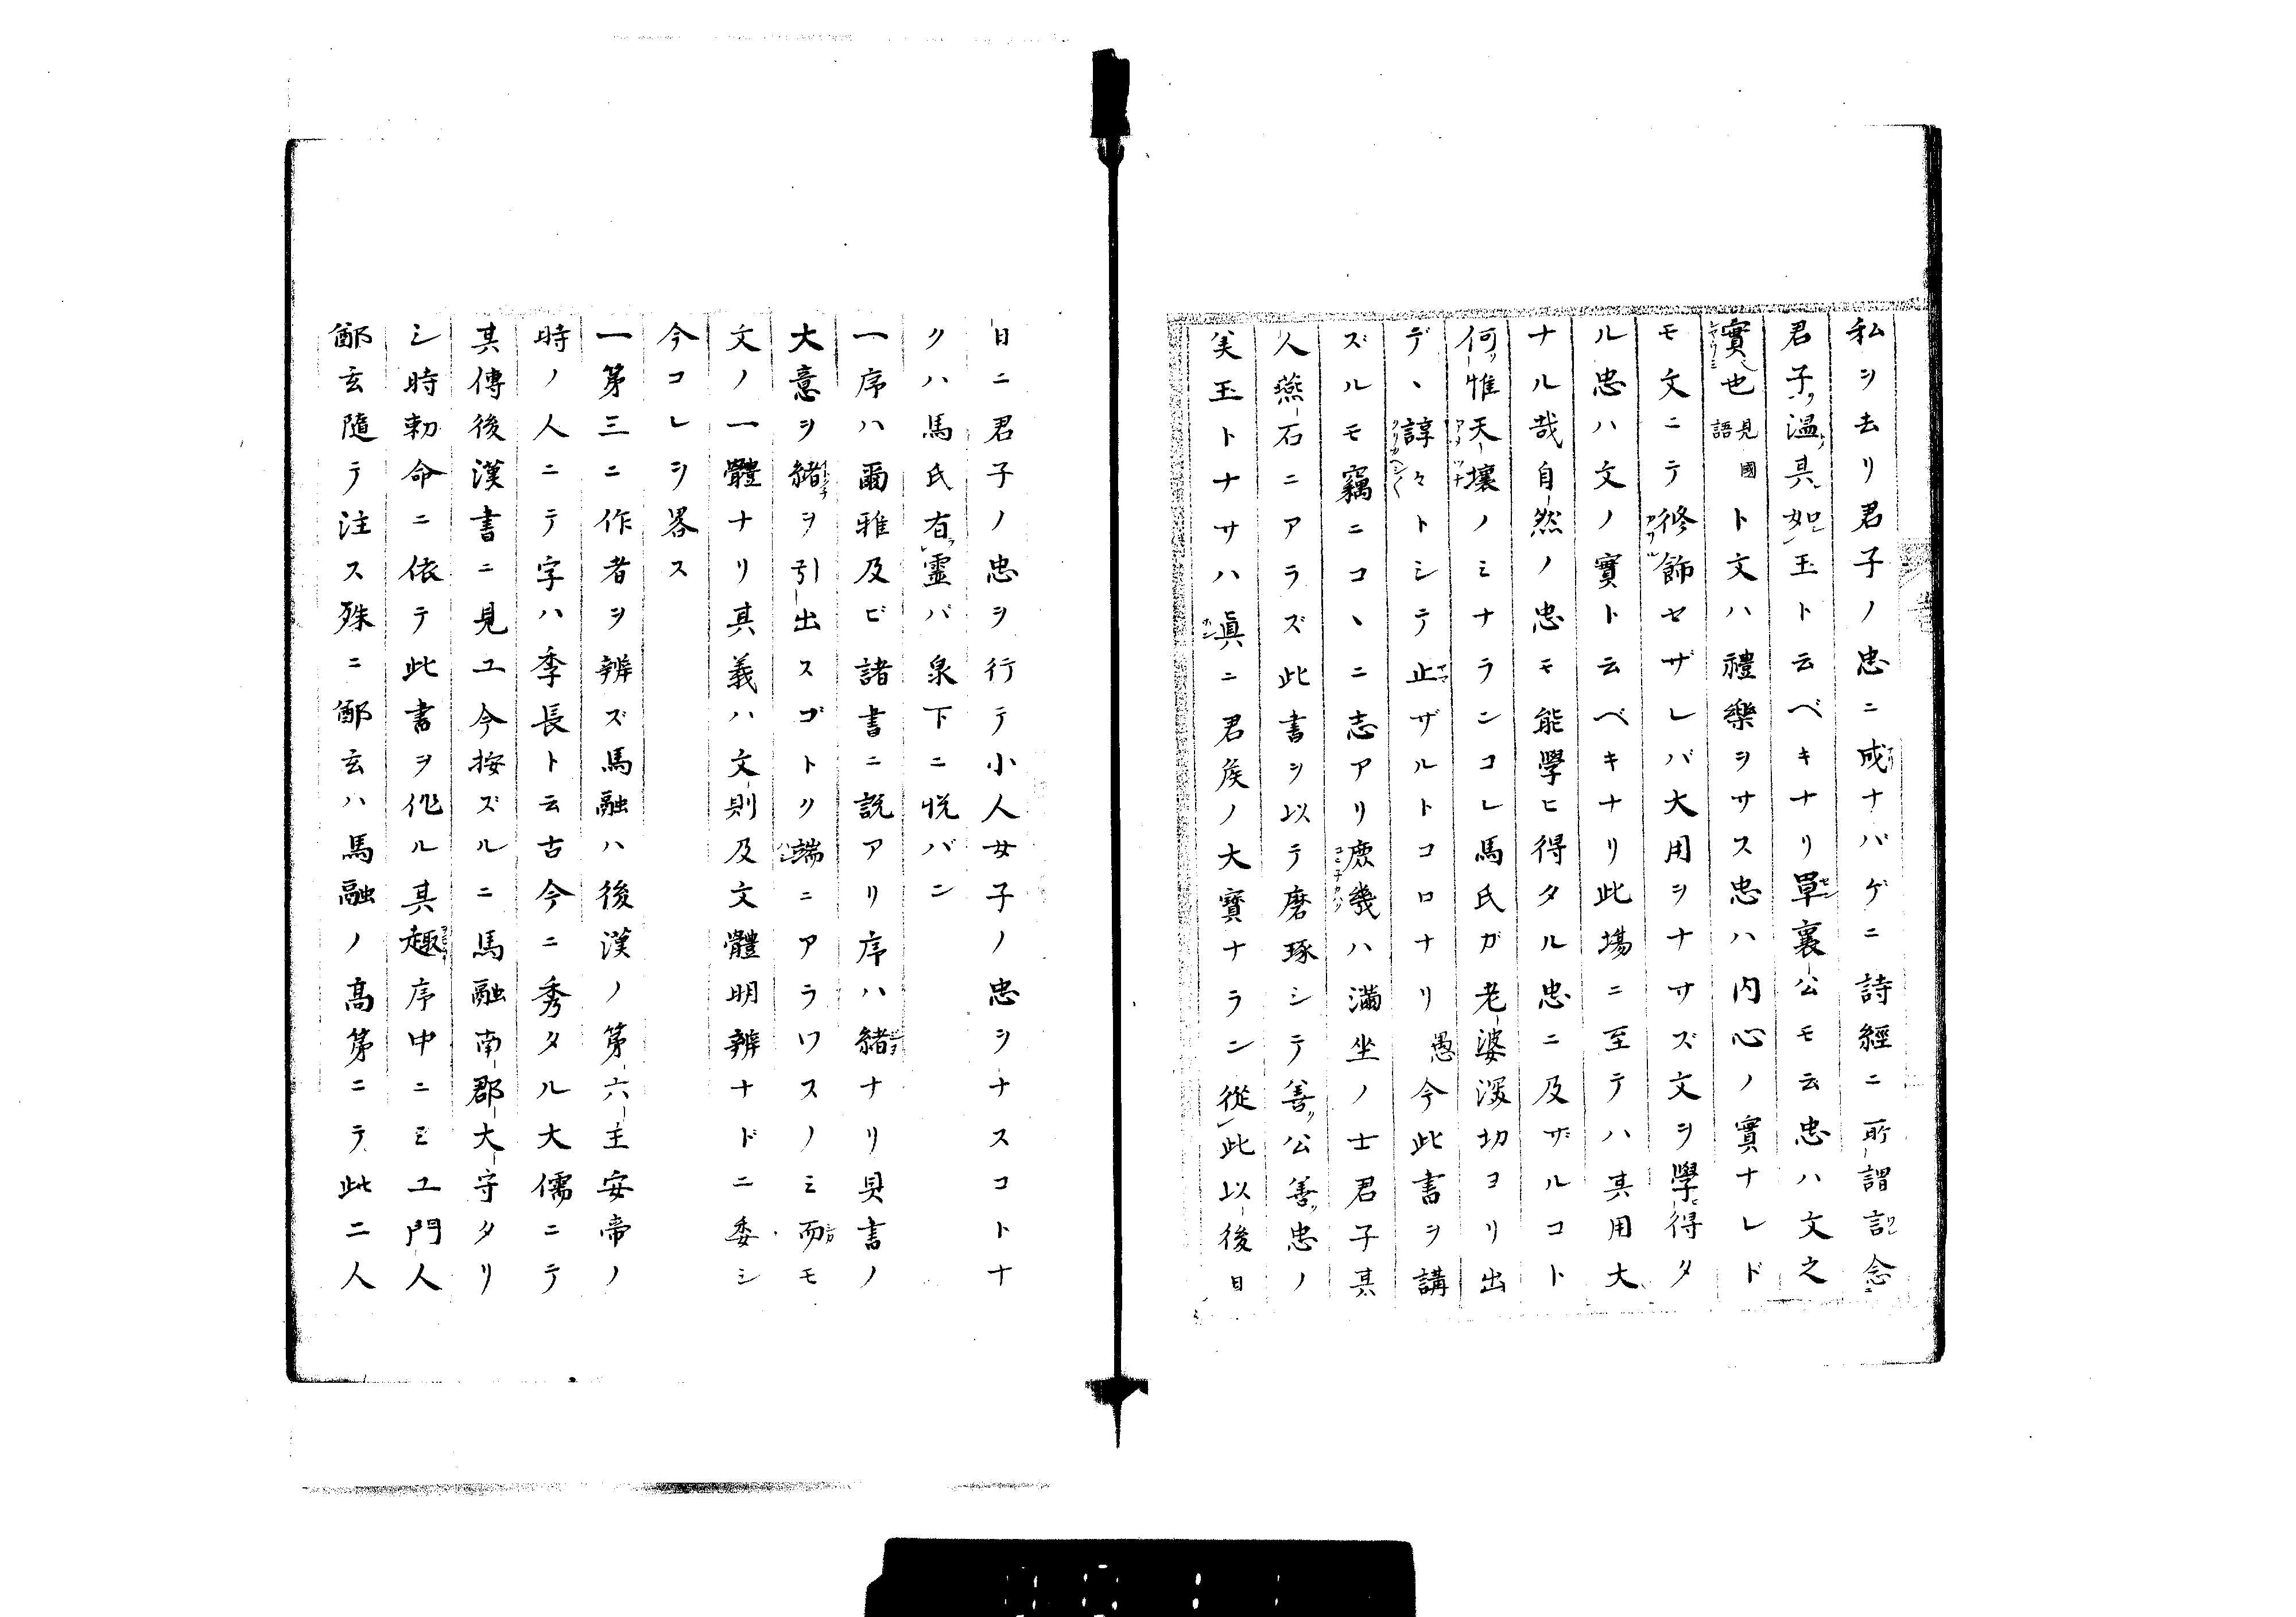 私ヲ去リ君子ノ忠ニ成ナバゲニ詩經ニ所謂言念
君子温其如玉ト云ベキナリ單襄公モ云忠ハ文之
實也見國語ト文ハ禮樂ヲサス忠ハ内心ノ實ナレド
モ文ニテ修飾セザレバ大用ヲナサズ文ヲ學得タ
ル忠ハ文ノ實ト云ベキナリ此場ニ至テハ其用大
ナル哉自然ノ忠モ能學ヒ得タル忠ニ及ザルコト
何惟天壤ノミナランコレ馬氏ガ老婆深切ヨリ出
デヽ諄々トシテ止ザルトコロナリ愚今此書ヲ講
ズルモ竊ニコヽニ志アリ庶幾ハ滿坐ノ士君子其
人燕石ニアラズ此書ヲ以テ磨琢シテ善公善忠ノ
美玉トナサハ眞ニ君矦ノ大寶ナラン從此以後日
日ニ君子ノ忠ヲ行テ小人女子ノ忠ヲナスコトナ
クハ馬氏有靈バ泉下ニ悦バン
一序ハ爾雅及ビ諸書ニ説アリ序ハ緒ナリ其書ノ
大意ヲ緒ヲ引出スゴトク端ニアラワスノミ而モ
文ノ一體ナリ其義ハ文則及文體明辨ナドニ委シ
今コレヲ畧ス
一第三ニ作者ヲ辨ズ馬融ハ後漢ノ第六主安帝ノ
時ノ人ニテ字ハ季長ト云古今ニ秀タル大儒ニテ
其傳後漢書ニ見ユ今按ズルニ馬融南郡大守タリ
シ時勅命ニ依テ此書ヲ作ル其趣序中ニミユ門人
鄭玄隨テ注ス殊ニ鄭玄ハ馬融ノ高第ニテ此二人